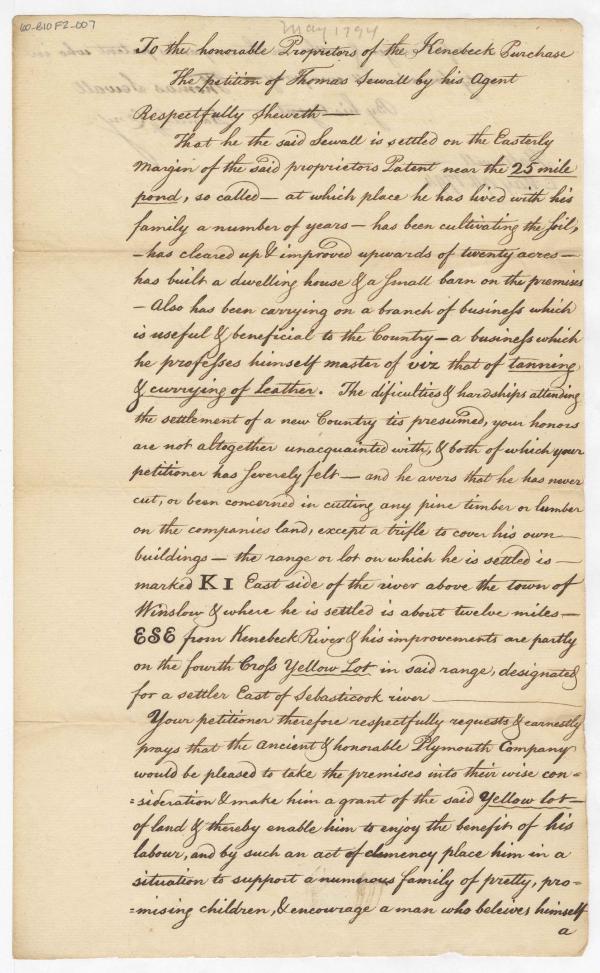 60-B10F2-007
May 1794
To the honorable Proprietors of the Kenebeck Purchase
The petition of Thomas Sewall by his Agent
Respectfully Sheweth—
That he the said Sewall is settled on the Easterly
margin of the said proprietors Patent near the 25 mile
pond, so called— at which place he has lived with his
family a number of years— has been cultivating the soil,
—has cleared up & improved upwards of twenty acres—
has built a dwelling house & a small barn on the premises
— Also has been carrying on a branch of business which
is useful & beneficial to the Country— a business which
he professes himself master of viz that of tanning
& currying of Leather. The dificulties & hardships attending
the settlement of a new Country tis presumed, your honors
are not altogether unacquainted with, & both of which your
petitioner has severely felt— and he avers that he has never
cut, or been concerned in cutting any pine timber or lumber
on the companies land, except a trifle to cover his own—
buildings— the range or lot on which he is settled is—
marked K1 East side of the river above the town of
Winslow & where he is settled is about twelve miles—
ESE from Kenebeck River & his improvements are partly
on the fourth Cross Yellow Lot in said range, designated
for a settler East of Sebasticook river
Your petitioner therefore respectfully requests & earnestly
prays that the ancient & honorable Plymouth Company
would be pleased to take the premises into their wise con=
=sideration & make him a grant of the said Yellow lot—
of land & thereby enable him to enjoy the benefit of his
labour, and by such an act of clemency place him in a
situation to support a numerous family of pretty, pro=
=mising children, & encourage a man who beleives himself
a